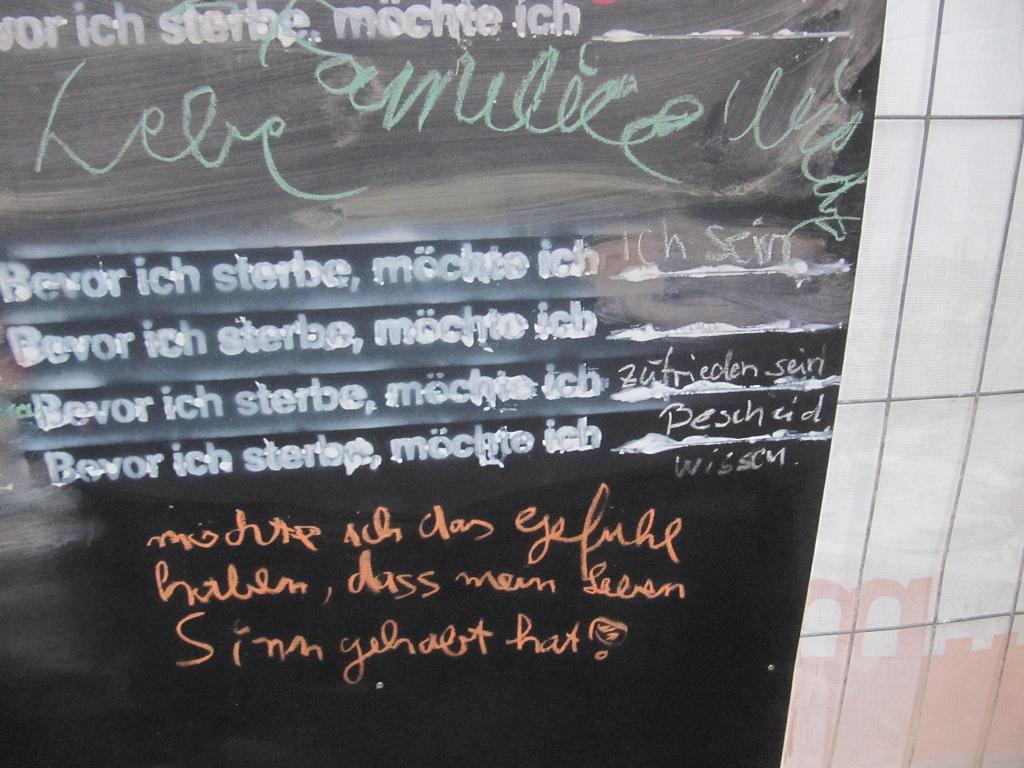 Bevor ich sterbe, möchte ich
Familie
Bevor ich sterbe, möchte ich ich sein
Bevor ich sterbe, möchte ich
Bevor ich sterbe, möchte ich zufrieden sein
Bevor ich sterbe, möchte ich Bescheid
wissen.
möchte ich das Gefühl
haben, dass mein Leben
Sinn gehabt hat!